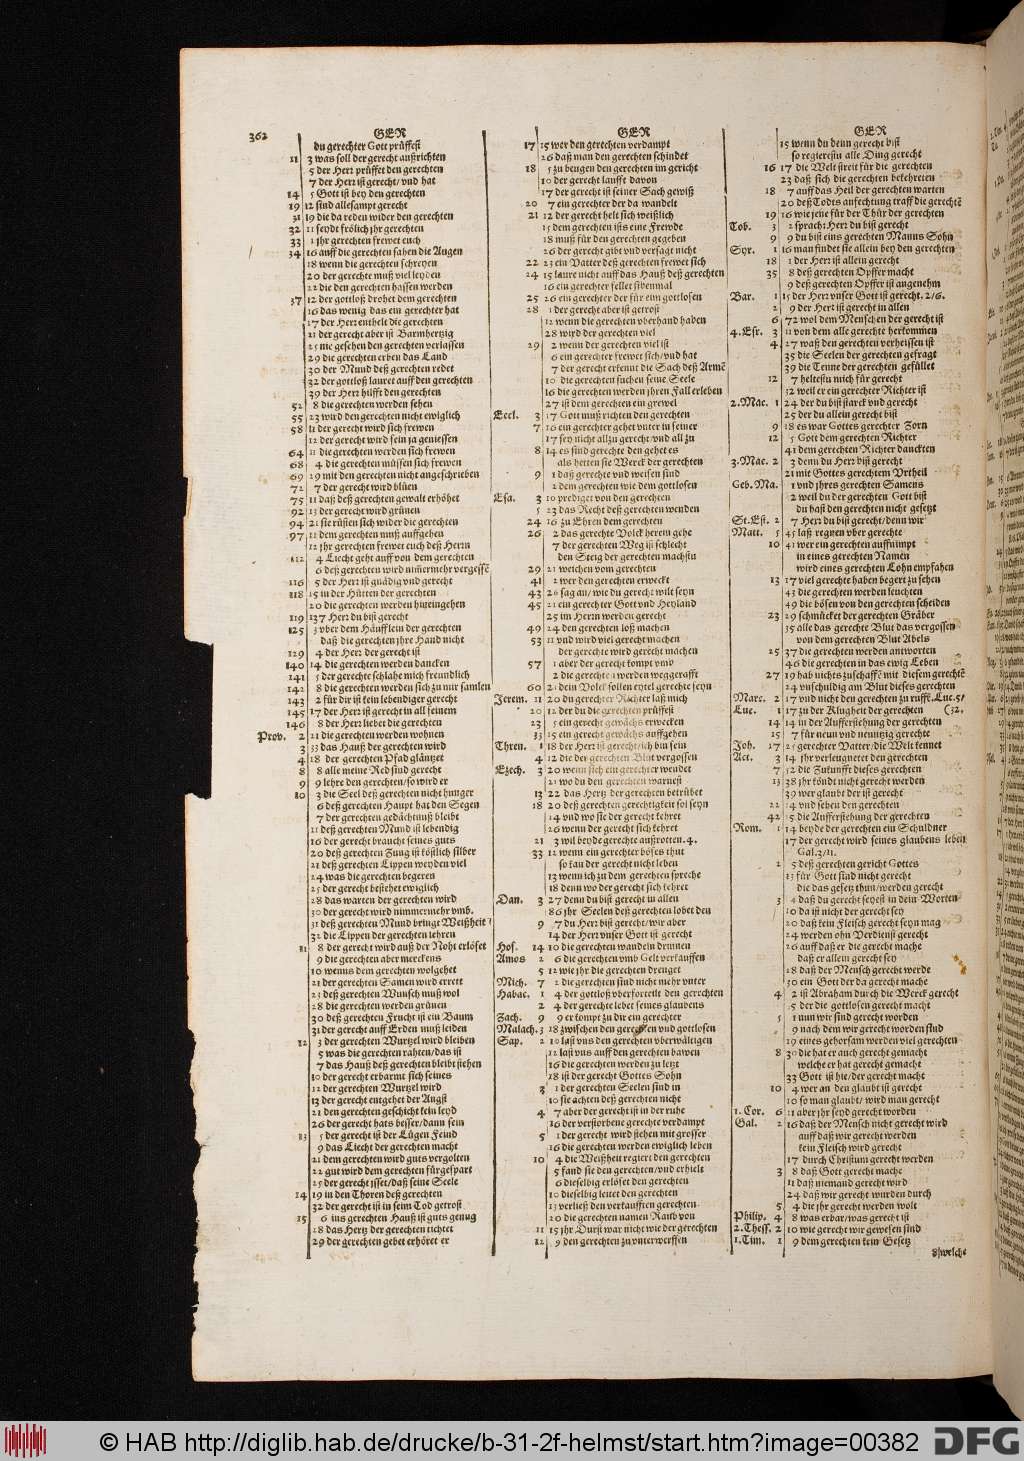 362
GER
du gerechter Gott prüffest
11 3 was soll der gerecht außrichten
5 der Herr prüffet den gerechten
7 der Herr ist gerecht/ vnd hat
14 5 Gott ist bey den gerechten
19 12 sind allesampt gerecht
31 19 die da reden wider den gerechten
32 11 seydt frölich jhr gerechten
33 1 jhr gerechten frewet euch
34 16 auff die gerechten sahen die Augen
18 wenn die gerechten schreyen
20 der gerechte muß viel leyden
22 die den gerechten hassen werden
37 12 der gottloß drohet dem gerechten
16 das wenig das ein gerechter hat
17 der Herr enthelt die gerechten
21 der gerecht aber ist Barmhertzig
25 nie gesehen den gerechten verlassen
29 die gerechten erben das Land
30 der Mund deß gerechten redet
32 der gottloß lauret auff den gerechten
39 der Herr hilfft den gerechten
52 8 die gerechten werden sehen
55 23 wird den gerechten nicht ewiglich
58 11 der gerecht wird sich frewen
12 der gerecht wird sein ja geniessen
64 11 die gerechten werden sich frewen
68 4 die gerechten müssen sich frewen
69 29 mit den gerechten nicht angeschrieben
72 7 der gerecht wird blüen
75 11 daß deß gerechten gewalt erhöhet
92 13 der gerecht wird grünen
94 21 sie rüsten sich wider die gerechten
97 11 dem gerechten muß auffgehen
12 jhr gerechten frewet euch deß Herrn
112 4 Liecht geht auff von dem gerechten
6 deß gerechten wird nim̃ermehr vergessẽ
116 5 der Herr ist gnädig vnd gerecht
118 15 in der Hütten der gerechten
20 die gerechten werden hineingehen
119 137 Herr du bist gerecht
125 3 vber dem Häufflein der gerechten
daß die gerechten jhre Hand nicht
129 4 der Herr der gerecht ist
140 14 die gerechten werden dancken
141 5 der gerechte schlahe mich freundlich
142 8 die gerechten werden sich zu mir samlen
143 2 für dir ist kein lebendiger gerecht
145 17 der Herr ist gerecht in all seinem
146 8 der Herr liebet die gerechten
Prov. 2 21 die gerechten werden wohnen
3 33 das Hauß der gerechten wird
4 18 der gerechten Pfad gläntzet
8 8 alle meine Red sind gerecht
9 9 lehre den gerechten/ so wird er
10 3 die Seel deß gerechten nicht hunger
6 deß gerechten Haupt hat den Segen
7 der gerechten gedächtnuß bleibt
11 deß gerechten Mund ist lebendig
16 der gerecht braucht seines guts
20 deß gerechten Zung ist köstlich silber
21 deß gerechten Lippen weyden viel
24 was die gerechten begeren
25 der gerecht bestehet ewiglich
28 das warten der gerechten wird
30 der gerecht wird nimmermehr vmb.
31 deß gerechten Mund bringt Weißheit
32 die Lippen der gerechten lehren
11 8 der gerecht wird auß der Noht erlöset
9 die gerechten aber merckens
10 wenns dem gerechten wolgehet
21 der gerechten Samen wird errett
23 deß gerechten Wunsch muß wol
28 die gerechten werden grünen
30 deß gerechten Frucht ist ein Baum
31 der gerecht auff Erden muß leiden
12 3 der gerechten Wurtzel wird bleiben
5 was die gerechten rahten/ das ist
7 das Hauß deß gerechten bleibt stehen
10 der gerecht erbarmt sich seines
12 der gerechten Wurtzel wird
13 der gerecht entgehet der Angst
21 den gerechten geschicht kein leyd
26 der gerecht hats besser/ dann sein
13 5 der gerecht ist der Lügen Feind
9 das Liecht der gerechten macht
21 dem gerechten wird guts vergolten
22 gut wird dem gerechten fürgespart
25 der gerecht isset/ daß seine Seele
14 19 in den Thoren deß gerechten
32 der gerecht ist in seim Tod getrost
15 6 ins gerechten Hauß ist guts genug
28 das Hertz der gerechten tichtet
29 der gerechten gebet erhöret er
GER
17 15 wer den gerechten verdampt
26 daß man den gerechten schindet
18 5 zu beugen den gerechten im gericht
10 der gerecht laufft davon
17 der gerecht ist seiner Sach gewiß
20 7 ein gerechter der da wandelt
21 12 der gerecht helt sich weißlich
15 dem gerechten ists eine Frewde
18 muß für den gerechten gegeben
26 der gerecht gibt vnd versagt nicht
22 23 ein Vatter deß gerechten frewet sich
24 15 laure nicht auff das Hauß deß gerechten
16 ein gerechter fellet siebenmal
25 26 ein gerechter der für eim gottlosen
28 1 der gerecht aber ist getrost
12 wenn die gerechten vberhand haben
28 wird der gerechten viel
29 2 wenn der gerechten viel ist
6 ein gerechter frewet sich/ vnd hat
7 der gerecht erkent die Sach deß Armẽ
10 die gerechten suchen seine Seele
16 die gerechten werden jhren Fall erleben
27 ist dem gerechten ein grewel
Eccl. 3 17 Gott muß richten den gerechten
7 16 ein gerechter gehet vnter in seiner
17 sey nicht allzu gerecht/ vnd all zu
8 14 es sind gerechte den gehet es
als hetten sie Werck der gerechten
9 1 daß gerechten vnd weisen sind
2 dem gerechten wie dem gottlosen
Esa. 3 10 prediget von den gerechten
5 23 das Recht deß gerechten wenden
24 16 zu Ehren dem gerechten
26 2 das gerechte Volck herein gehe
7 der gerechten Weg ist schlecht
den Steig der gerechten machstu
29 21 weichen vom gerechten
41 2 wer den gerechten erweckt
43 26 sag an/ wie du gerecht wilt seyn
45 21 ein gerechter Gott vnd Heyland
25 im Herrn werden gerecht
49 24 den gerechten loß machen
53 11 vnd wird viel gerecht machen
der gerechte wird gerecht machen
57 1 aber der gerecht kompt vmb
2 die gerechten werden weggerafft
60 21 dein Volck sollen eytel gerechte seyn
Jerem. 11 20 du gerechter Richter laß mich
20 12 der du die gerechten prüffest
23 5 ein gerecht gewächs erwecken
33 15 ein gerecht gewächs auffgehen
Thren. 1 18 der Herr ist gerecht/ ich bin sein
4 12 die der gerechten Blut vergossen
Ezech. 3 20 wenn sich ein gerechter wendet
21 wo du den gerechten warnest
13 22 das Hertz der gerechten betrübet
18 20 deß gerechten gerechtigkeit sol seyn
24 vnd wo sie der gerecht kehret
26 wenn der gerecht sich kehret
21 3 wil beyde gerechte außrotten. 4.
33 12 wenn ein gerechter böses thut
so kan der gerecht nicht leben
13 wenn ich zu dem gerechten spreche
18 denn wo der gerecht sich kehret
Dan. 3 27 denn du bist gerecht in allen
86 jhr Seelen deß gerechten lobet den
9 7 du Herr bist gerecht/ wir aber
14 der Herr vnser Gott ist gerecht
Hos. 14 10 die gerechten wandeln drinnen
Amos 2 6 die gerechten vmb Gelt verkauffen
5 12 wie jhr die gerechten drenget
Mich. 7 2 die gerechten sind nicht mehr vnter
Habac. 1 4 der gottloß vberforteilt den gerechten
2 4 der gerechte lebet seines glaubens
Zach. 9 9 er kompt zu dir ein gerechter
Malach. 3 18 zwischen den gerechten vnd gottlosen
Sap. 2 10 last vns den gerechten vberwältigen
12 last vns auff den gerechten lawren
16 die gerechten werden zu letzt
18 ist der gerecht Gottes Sohn
3 1 der gerechten Seelen sind in
10 sie achten deß gerechten nicht
4 7 aber der gerecht ist in der ruhe
16 der verstorbene gerechte verdampt
5 1 der gerecht wird stehen mit grosser
16 die gerechten werden ewiglich leben
10 4 die Weißheit regiert den gerechten
5 fand sie den gerechten/ vnd erhielt
6 dieselbig erlöset den gerechten
10 dieselbig leitet den gerechten
13 verließ den verkaufften gerechten
20 die gerechten namen Raub von
11 15 jhr Durst war nicht wie der gerechten
12 9 den gerechten zu vnterwerffen
GER
15 wenn du denn gerecht bist
so regierestu alle Ding gerecht
16 17 die Welt streit für die gerechten
23 daß sich die gerechten bekehreten
18 7 auff das Heil der gerechten warten
20 deß Todts aufechtung traff die gerechtẽ
19 16 wie jene für der Thür der gerechten
Tob. 3 2 sprach: Herr du bist gerecht
9 9 du bist eins gerechten Manns Sohn
Syr. 1 16 man findet sie allein bey den gerechten
18 1 der Herr ist allein gerecht
35 8 deß gerechten Opffer macht
9 deß gerechten Opffer ist angenehm
Bar. 1 15 der Herr vnser Gott ist gerecht. 2/6.
2 9 der Herr ist gerecht in allen
6 72 wol dem Menschen der gerecht ist
4. Esr. 3 11 von dem alle gerechte herkommen
4 27 waß den gerechten verheissen ist
35 die Seelen der gerechten gefragt
39 die Tenne der gerechten gefüllet
12 7 heltestu mich für gerecht
32 weil er ein gerechter Richter ist
2. Mac. 1 24 der du bist starck vnd gerecht
25 der du allein gerecht bist
9 18 es war Gottes gerechter Zorn
12 5 Gott dem gerechten Richter
41 dem gerechten Richter danckten
3. Mac. 2 3 denn du Herr bist gerecht
21 mit Gottes gerechtem Vrtheil
Geb. Ma. 1 vnd jhres gerechten Samens
2 weil du der gerechten Gott bist
du hast den gerechten nicht gesetzt
St. Est. 2 7 Herr du bist gerecht/ denn wir
Matt. 5 45 laß regnen vber gerechte
10 41 wer ein gerechten auffnimpt
in eines gerechten Namen
wird eines gerechten Lohn empfahen
13 17 viel gerechte haben begert zu sehen
43 die gerechten werden leuchten
49 die bösen von den gerechten scheiden
23 29 schmücket der gerechten Gräber
35 alle das gerechte Blut das vergossen
von dem gerechten Blut Abels
25 37 die gerechten werden antworten
46 die gerechten in das ewig Leben
27 19 hab nichts zuschaffẽ mit diesem gerechtẽ
24 vnschuldig am Blut dieses gerechten
Marc. 2 17 vnd nicht den gerechten zu ruffẽ. Luc. 5/
(32.
Luc. 1 17 zu der Klugheit der gerechten
14 14 in der Aufferstehung der gerechten
15 7 für neun vnd neuntzig gerechte
Joh. 17 25 gerechter Vatter/ die Welt kennet
Act. 3 14 jhr verleugnetet den gerechten
7 52 die Zukunfft dieses gerechten
13 38 jhr köndt nicht gerecht werden
39 wer glaubt der ist gerecht
22 14 vnd sehen den gerechten
42 15 die Aufferstehung der gerechten
Rom. 1 14 beyde der gerechten ein Schuldner
17 der gerecht wird seines glaubens leben
Gal. 3/11.
2 5 deß gerechten gericht Gottes
13 für Gott sind nicht gerecht
die das gesetz thun/ werden gerecht
3 4 daß du gerecht seyest in dein Worten
10 da ist nicht der gerecht sey
20 daß kein Fleisch gerecht seyn mag
24 werden ohn Verdienst gerecht
26 auff daß er die gerecht mache
daß er allein gerecht sey
28 daß der Mensch gerecht werde
30 ein Gott der da gerecht mache
4 2 ist Abraham durch die Werck gerecht
5 der die gottlosen gerecht macht
5 1 nun wir sind gerecht worden
9 nach dem wir gerecht worden sind
19 eines gehorsam werden viel gerechten
8 30 die hat er auch gerecht gemacht
welche er hat gerecht gemacht
33 Gott ist hie/ der gerecht macht
10 4 wer an den glaubt ist gerecht
10 so man glaubt/ wird man gerecht
1. Cor. 6 11 aber jhr seyd gerecht worden
Gal. 2 16 daß der Mensch nicht gerecht wird
auff daß wir gerecht werden
kein Fleisch wird gerecht
17 durch Christum gerecht werden
3 8 daß Gott gerecht mache
11 daß niemand gerecht wird
24 daß wir gerecht wurden durch
5 4 die jhr gerecht werden wolt
Philip. 4 8 was erbar/ was gerecht ist
2. Thess. 2 10 wie gerecht wir gewesen sind
1. Tim. 1 9 dem gerechten kein Gesetz
8/welche
© HAB http://diglib.hab.de/drucke/b-31-2f-helmst/start.htm?image=00382
DFG